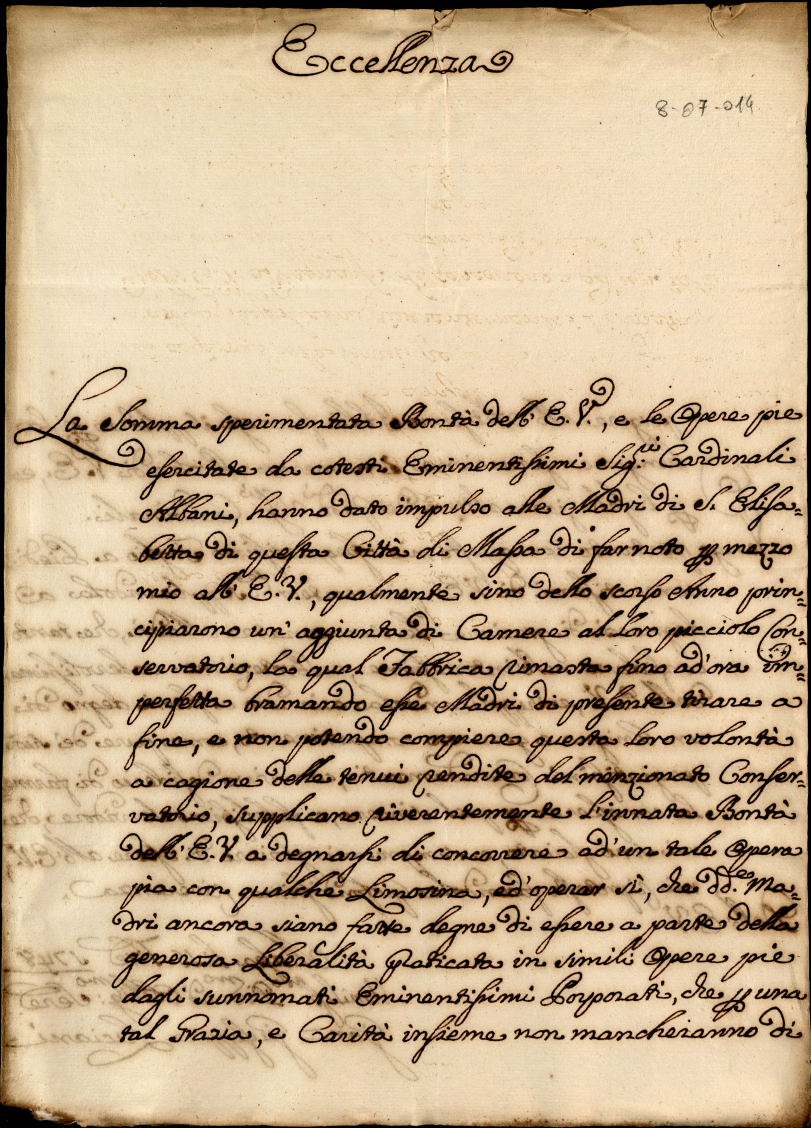 Eccellenza
8-07-014
La Somma sperimentata Bontà dell' E. V., e le Opere pie
esercitate da cotesti Eminentissimi Sig.ri Cardinali
Albani, hanno dato impulso alle Madri di S. Elisa=
betta di questa Città di Massa di far noto p mezzo
mio all' E. V., qualmente sino dello scorso Anno prin=
cipiarono un' aggiunta di Camere al loro picciolo Con=
servatorio, la qual Fabbrica rimasta fino ad' ora im=
perfetta bramando esse Madri di presente tirare a
fine, e non potendo compiere questa loro volontà
a cagione delle tenui rendite del menzionato Conser=
vatorio, supplicano riverentemente l'innata Bontà
dell' E. V. a degnarsi di concorrere ad' un tale Opera
pia con qualche Limosina, ed' operar sì, che dd.e Ma=
dri ancora siano fatte degne di essere a parte della
generosa Liberalità praticata in simili Opere pie
dagli sunnomati Eminentissimi Porporati, che p una
tal Grazia, e Carità insieme non mancheranno di